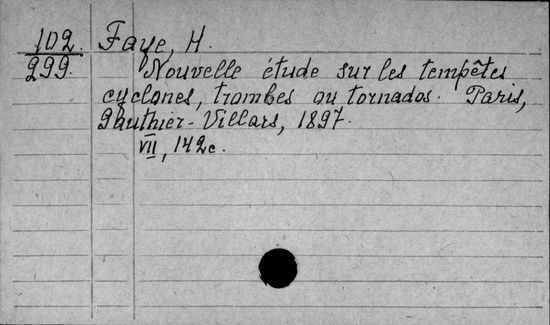 102. Faye, H.
299. Nouvelle étude sur les tempêtes
cyclones, trombes ou tornados. Paris,
Gauthier-Villars, 1897.
VII, 142c.